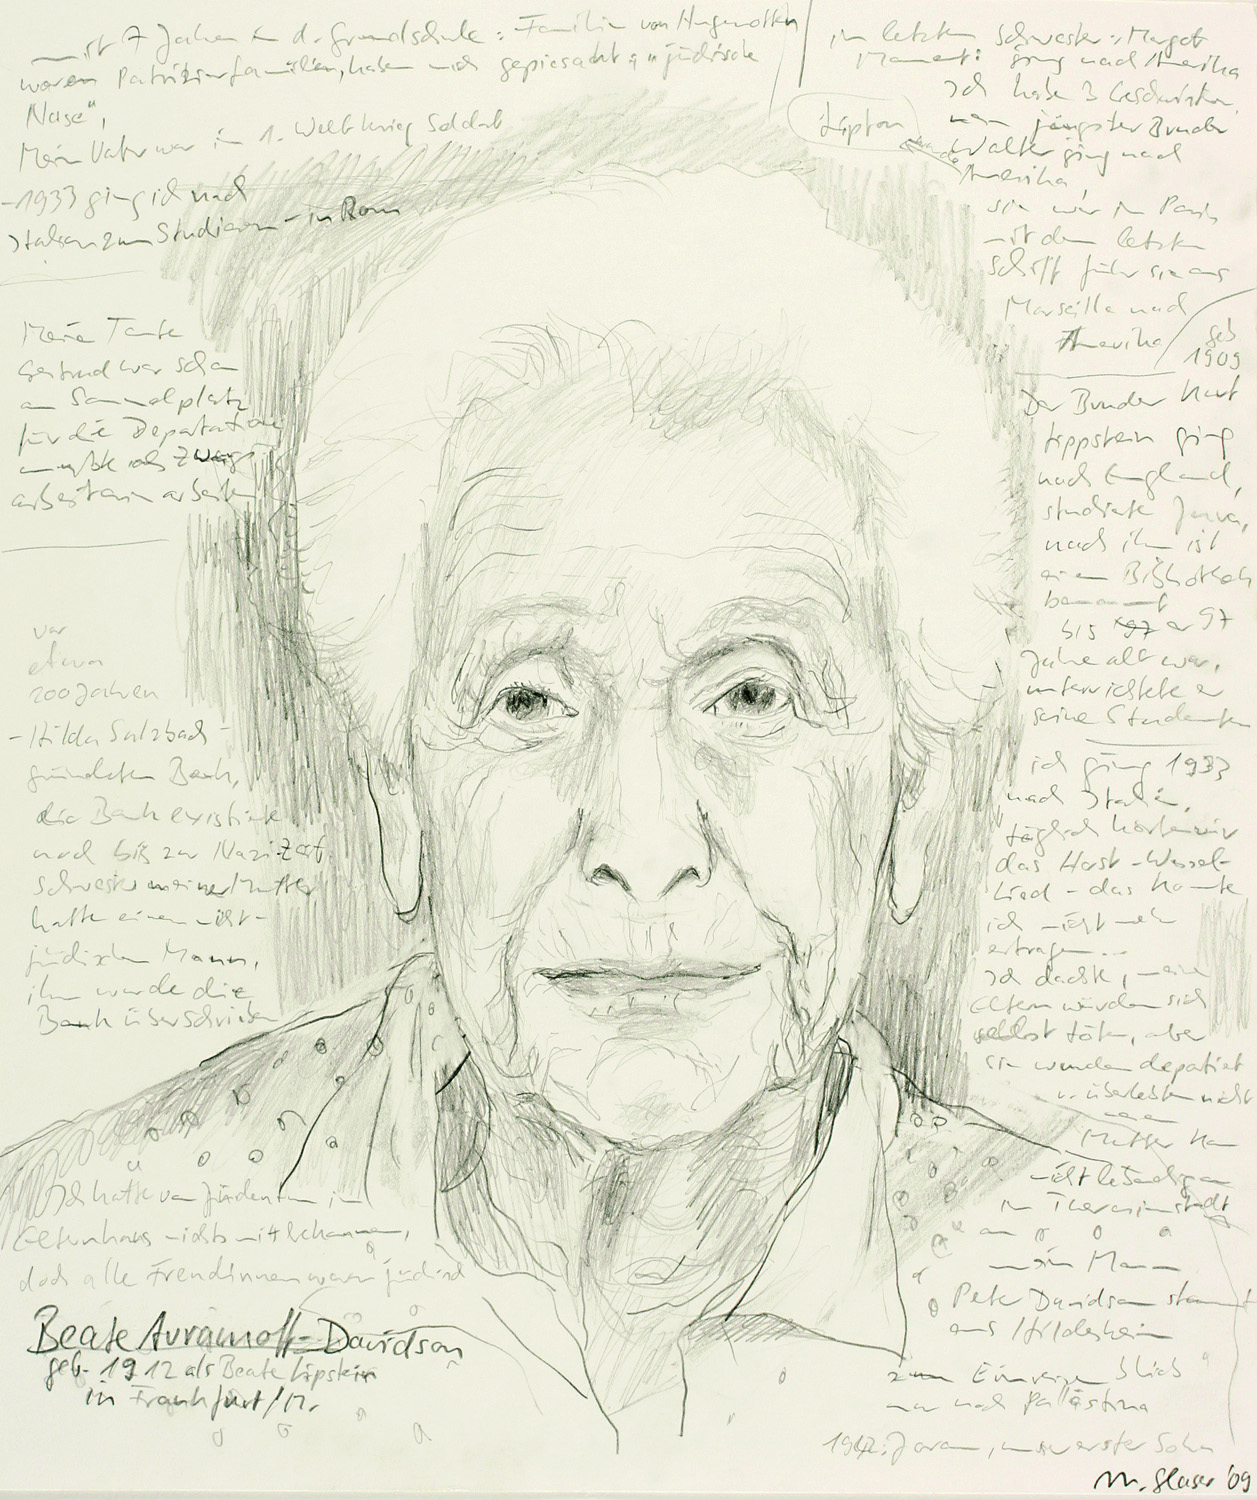 mit 7 Jahren in d. Grundschule: Familie von Hugenotten
waren Patrizierfamilien, haben mich gepiesackt "jüdische
Nase",
Mein Vater war im 1. Weltkrieg Soldat
-1933 ging ich nach
Italien zum Studieren - in Rom
Meine Tante
Gertrud war schon
am Sammelplatz
für die Deportation
mußte als Zwangs
arbeiterin arbeiten
vor
etwa
200 Jahren
- Hilda Sulzbach -
gründeten Bank,
die Bank existierte
noch bis zur Nazi-Zeit.
Schwester meiner Mutter
hatte einen nicht-
jüdischen Mann,
ihm wurde die
Bank überschrieben
Ich hatte vom Judentum im
Elternhaus nichts mitbekommen,
doch alle Freundinnen waren jüdisch
Beate Avramoff-Davidson
geb. 1912 als Beate Lipstein
in Frankfurt/M.
im letzten Schwester: Margot
Moment: ging nach Amerika
Ich habe 3 Geschwister,
mein jüngster Bruder
Lipton
Walter ging nach
Amerika,
sie war in Paris
mit dem letzten
Schiff fuhr sie aus
Marseille nach
Amerika
geb
1909
Der Bruder Kurt
Lippstein ging
nach England,
studierte Jura,
nach ihm ist
eine Bibliothek
benannt
bis er 97
Jahre alt war,
unterrichtete er
seine Studenten
ich ging 1933
nach Italien,
täglich hörten wir
das Horst-Wessel-
Lied - das konnte
ich nicht mehr
ertragen...
Ich dachte, meine
Eltern würden sich
selbst töten, aber
sie wurden deportiert
u. überlebten nicht
meine
Mutter kam
nicht lebendig
in Theresienstadt
an
mein Mann
Peter Davidson stammt
aus Hildesheim
zum Einreisen blieb
nur noch Palästina
1942: Joram, unser erster Sohn
M. Glaser '09